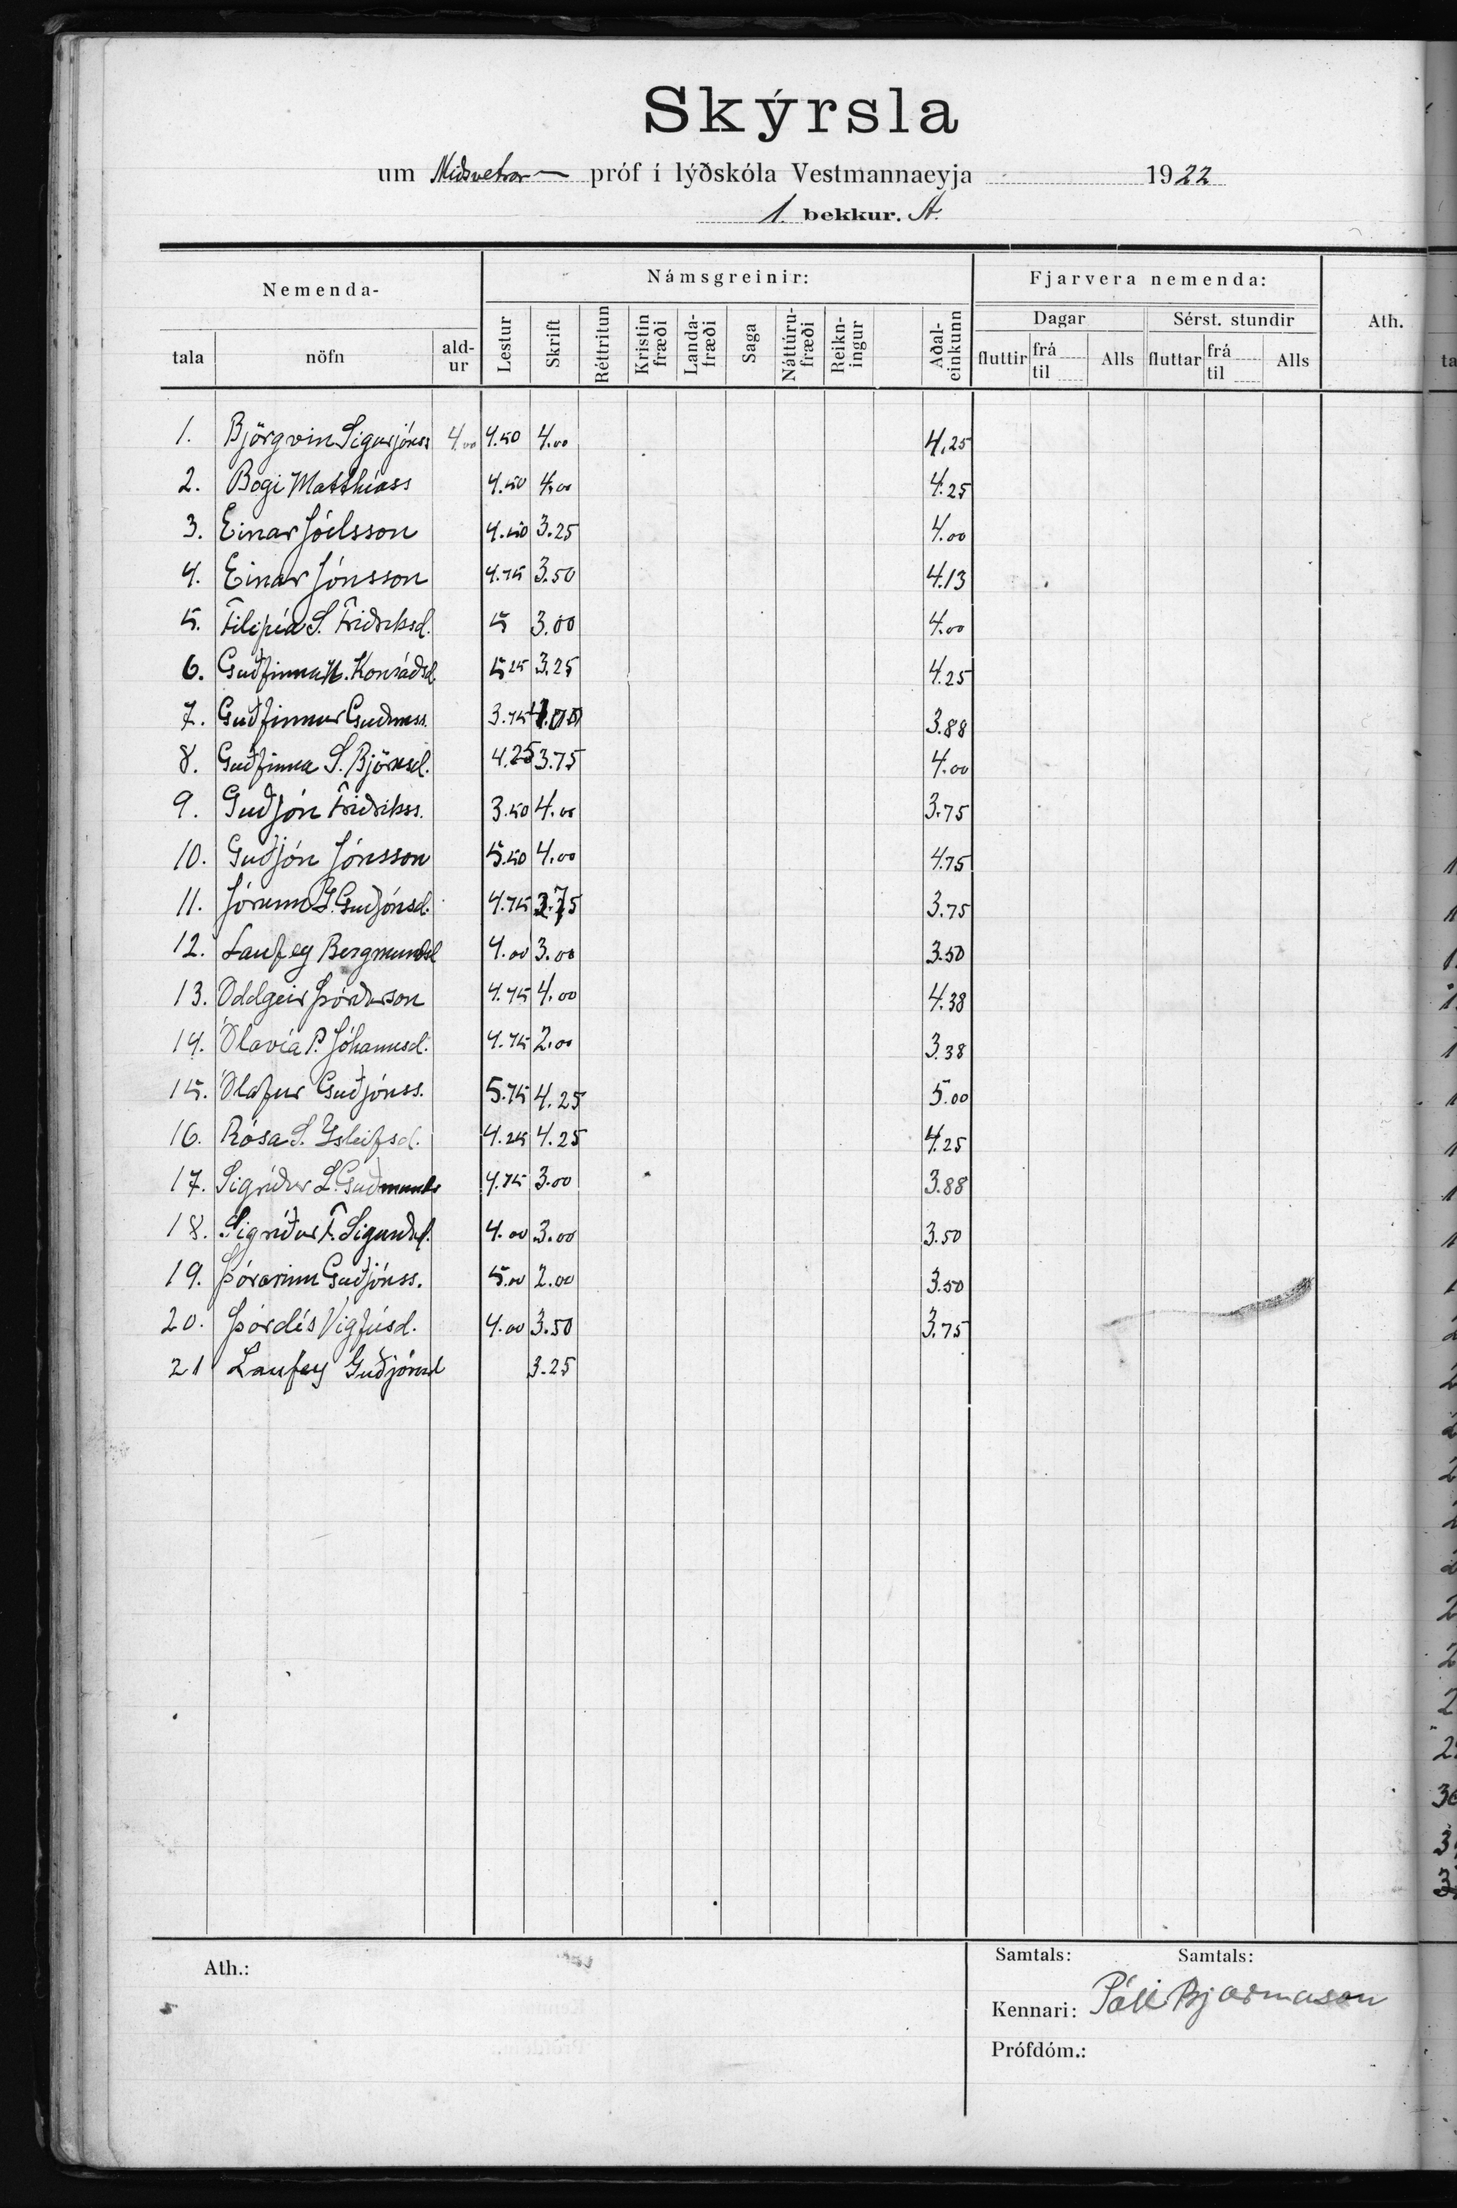 Skýrsla
um Miðsvetrar- próf í lýðskóla Vestmannaeyja 1922
1. bekkur. A.
Nemenda- Námsgreinir: Fjarvera nemenda: Ath.
tala nöfn ald-ur Lestur Skrift Réttritun Kristinfræði Landa-fræði Saga Náttúru-fræði Reikn-ingur Aðal-einkunn Dagar Sérst. stundir
fluttir frá til Alls fluttar frá til Alls
1. Björgvin Sigurjónss 4.00 4.50 4.00 4.25
2. Bogi Matthíass 4.50 4.00 4.25
3. Einar Jóelsson 4.50 3.25 4.00
4. Einar Jónsson 4.75 3.50 4.13
5. Filipía S. Friðriksd. 5 3.00 4.00
6. Guðfinna H. Konráðsd. 5 25 3.25 4.25
7. Guðfinnur Guðmss. 3.75 4.00 3.88
8. Guðfinna S. Björnsd. 4.25 3.75 4.00
9. Guðjón Friðrikss. 3.50 4.00 3.75
10. Guðjón Jónsson 5.50 4.00 4.75
11. Jórunn I. Guðjónsd. 4.75 2.75 3.75
12. Laufey Bergmundsd 4.00 3.00 3.50
13. Oddgeir Þórðarson 4.75 4.00 4.38
14. Ólavía P. Jóhannsd. 4.75 2.00 3.38
15. Ólafur Guðjónss. 5.75 4.25 5.00
16. Rósa S. Ísleifsd. 4.25 4.25 4.25
17. Sigríður L. Guðmunds 4.75 3.00 3.88
18. Sigríður F. Sigurðsd. 4.00 3.00 3.50
19. Þórarinn Guðjónss. 5.00 2.00 3.50
20. Þórdís Vigfúsd. 4.00 3.50 3.75
21 Laufey Guðjónsd 3.25
Ath.:
Samtals: Samtals:
Kennari: Páll Bjarnason
Prófdóm.: